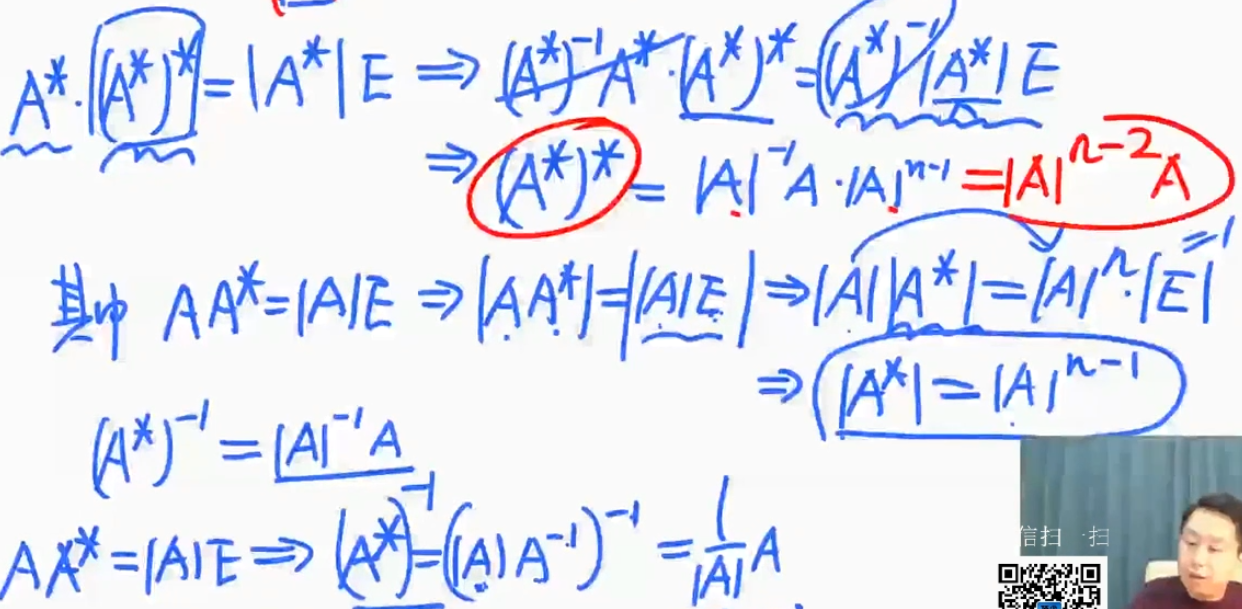 A*·(A*)* = |A*|E ⇒ (A*)⁻¹A*·(A*)* = (A*)⁻¹|A*|E
⇒ (A*)* = |A|⁻¹A·|A|ⁿ⁻¹ = |A|ⁿ⁻²A
其中 AA* = |A|E ⇒ |AA*| = ||A|E| ⇒ |A||A*| = |A|ⁿ·|E| = 1
⇒ |A*| = |A|ⁿ⁻¹
(A*)⁻¹ = |A|⁻¹A
AA* = |A|E ⇒ (A*)⁻¹ = (|A|A⁻¹)⁻¹ = 1/|A| A
信扫一扫